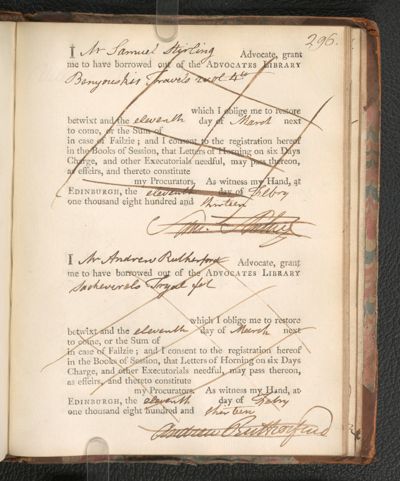 296.
I Mr Samuel Stirling Advocate, grant
me to have borrowed out of the ADVOCATES LIBRARY
Travels 4to
which I oblige me to restore
betwixt and the eleventh day of March next
to come, or the Sum of
in case of Failzie; and I consent to the registration hereof
in the Books of Session, that Letters of Horning on six Days
Charge, and other Executorials needful, may pass thereon,
as effeirs, and thereto constitute
my Procurators. As witness my Hand, at
EDINBURGH, the eleventh day of Febry
one thousand eight hundred and thirteen
I Mr Andrew Rutherford Advocate, grant
me to have borrowed out of the ADVOCATES LIBRARY
Sacheverels Tryal fol
which I oblige me to restore
betwixt and the eleventh day of March next
to come, or the Sum of
in case of Failzie; and I consent to the registration hereof
in the Books of Session, that Letters of Horning on six Days
Charge, and other Executorials needful, may pass thereon,
as effeirs, and thereto constitute
my Procurators. As witness my Hand, at
EDINBURGH, the eleventh day of Febry
one thousand eight hundred and thirteen
Andrew Rutherfurd